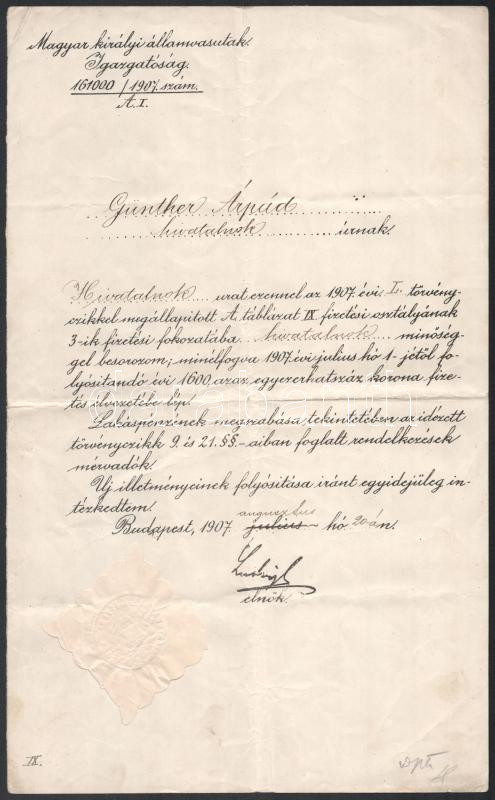 Magyar királyi államvasutak.
Igazgatóság.
161000 / 1907. szám.
A. I.
Günther Árpád
hivatalnok úrnak.
Hivatalnok urat ezennel az 1907. évi L. törvény-
czikkel megállapitott A. táblázat IX fizetési osztályának
3-ik fizetési fokozatába hivatalnok minőség-
gel besorozom; minélfogva 1907. évi julius hó 1-jétől fo-
lyósitandó évi 1600, azaz egyezerhatszáz korona fize-
tés élvezetébe lép.
Lakáspénzének megszabása tekintetében az idézett
törvényczikk 9. és 21. §§.-aiban foglalt rendelkezések
mérvadók.
Uj illetményeinek folyósitása iránt egyidejüleg in-
tézkedtem.
augusztus
Budapest, 1907. julius hó 20-án.
Ludvigh
elnök.
IX.